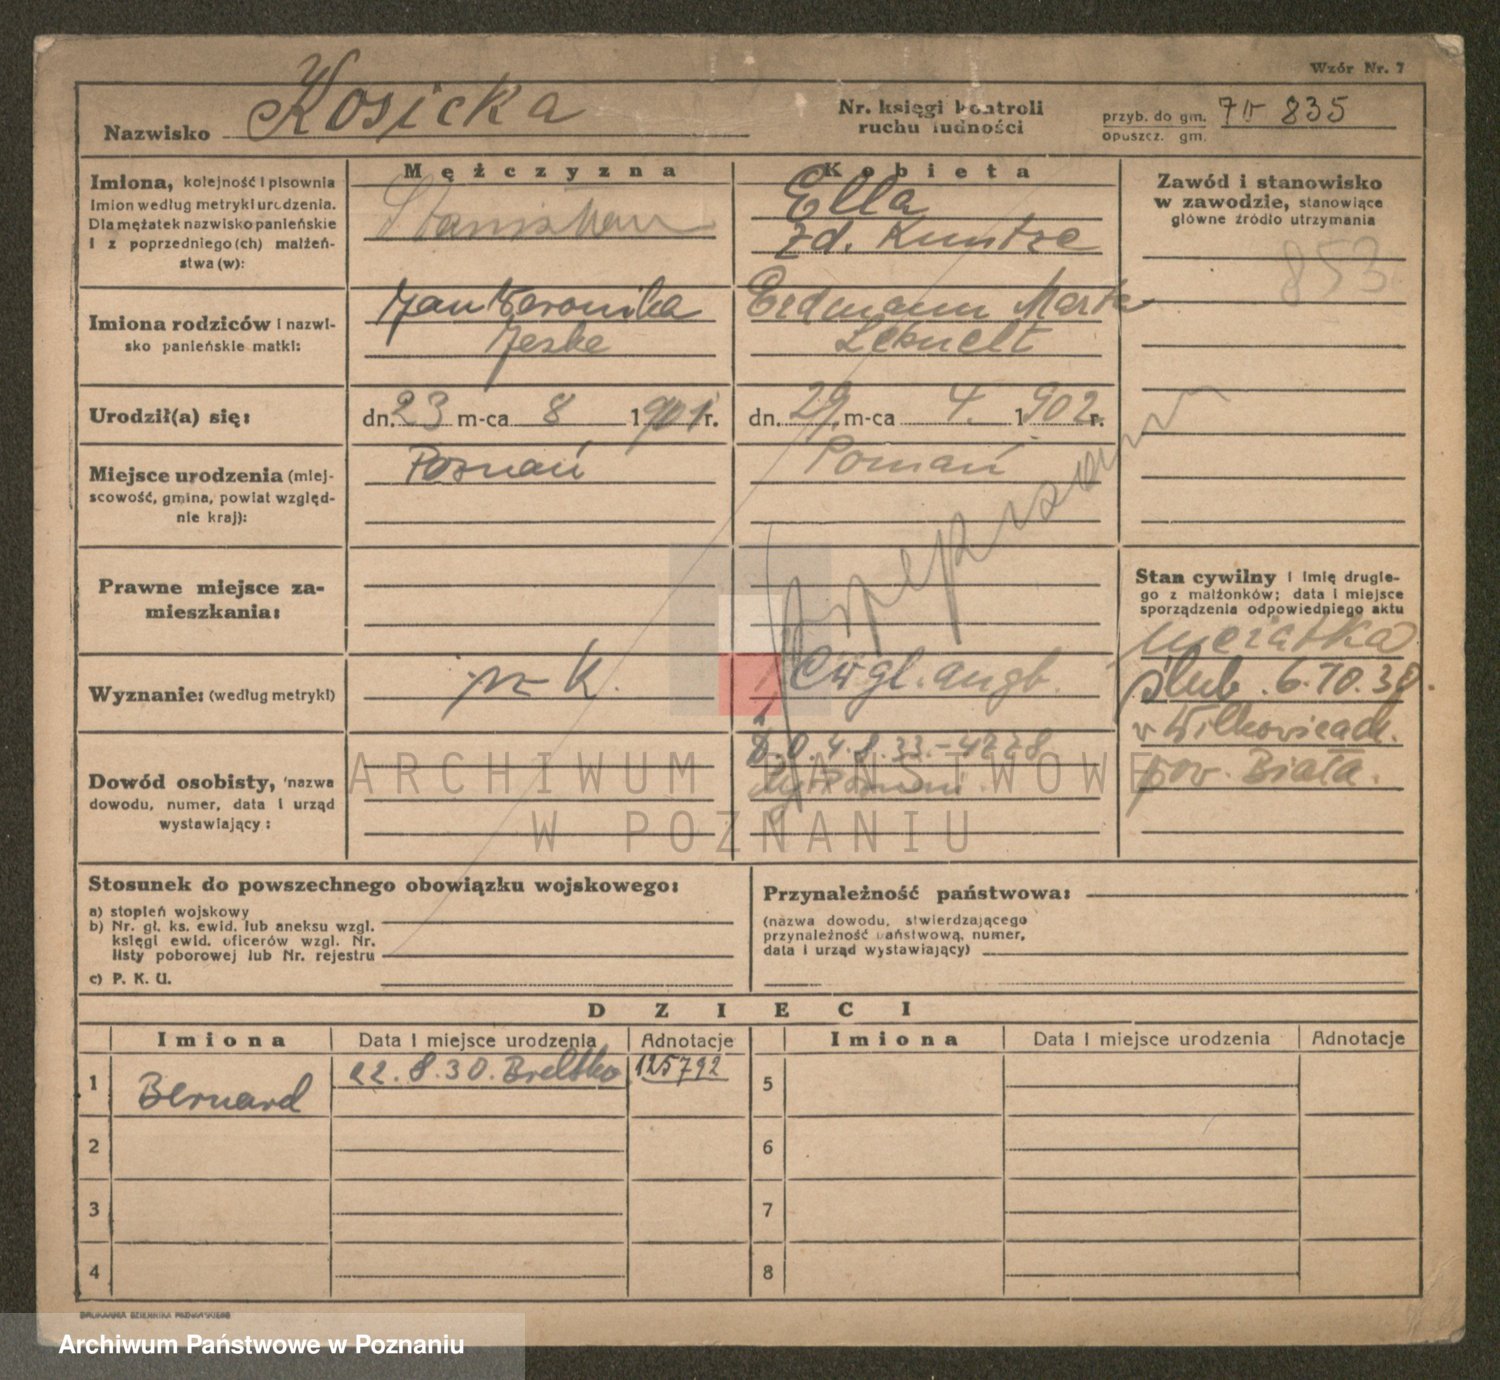 Wzór Nr. 7
Nazwisko Kosicka
Nr. księgi kontroli
ruchu ludności
przyb. do gm.
opuszcz. gm.
835
Mężczyzna
Kobieta
Imiona, kolejność i pisownia
Imion według metryki urodzenia.
Dla mężatek nazwisko panieńskie
i z poprzedniego (ch) małżeń-
stwa (w):
Stanisław
Ella
zd. Kuntze
Zawód i stanowisko
w zawodzie, stanowiące
główne źródło utrzymania
853
Imiona rodziców i nazwi-
sko panieńskie matki:
Jan Weronika
Jeske
Erdmann Marta
Urodził(a) się:
dn. 23 m-ca 8 1901 r.
dn. 29. m-ca 4. 1902 r.
Miejsce urodzenia (miej-
scowość, gmina, powiat względ-
nie kraj):
Poznań
Poznań
Prawne miejsce za-
mieszkania:
Stan cywilny i imię drugie-
go z małżonków; data i miejsce
sporządzenia odpowiedniego aktu
mężatka
ślub. 6.10.38.
w Wilkowicach.
pow. Biała.
Wyznanie: (według metryki)
rz-k.
ewgl. augb.
Dowód osobisty, (nazwa
dowodu, numer, data i urząd
wystawiający:
D.O. 4.8.33.-4228
ARCHIWUM PAŃSTWOWE
W POZNANIU
Stosunek do powszechnego obowiązku wojskowego:
a) stopień wojskowy
b) Nr. gł. ks. ewid. lub aneksu wzgl.
księgi ewid. oficerów wzgl. Nr.
listy poborowej lub Nr. rejestru
c) P. K. U.
Przynależność państwowa:
(nazwa dowodu, stwierdzającego
przynależność państwową, numer,
data i urząd wystawiający)
DZIECI
Imiona
Data i miejsce urodzenia
Adnotacje
Imiona
Data i miejsce urodzenia
Adnotacje
1
Bernard
22.8.30. Bielsko
125792
5
2
6
3
7
4
8
DRUKARNIA DZIENNIKA POZNAŃSKIEGO
Archiwum Państwowe w Poznaniu